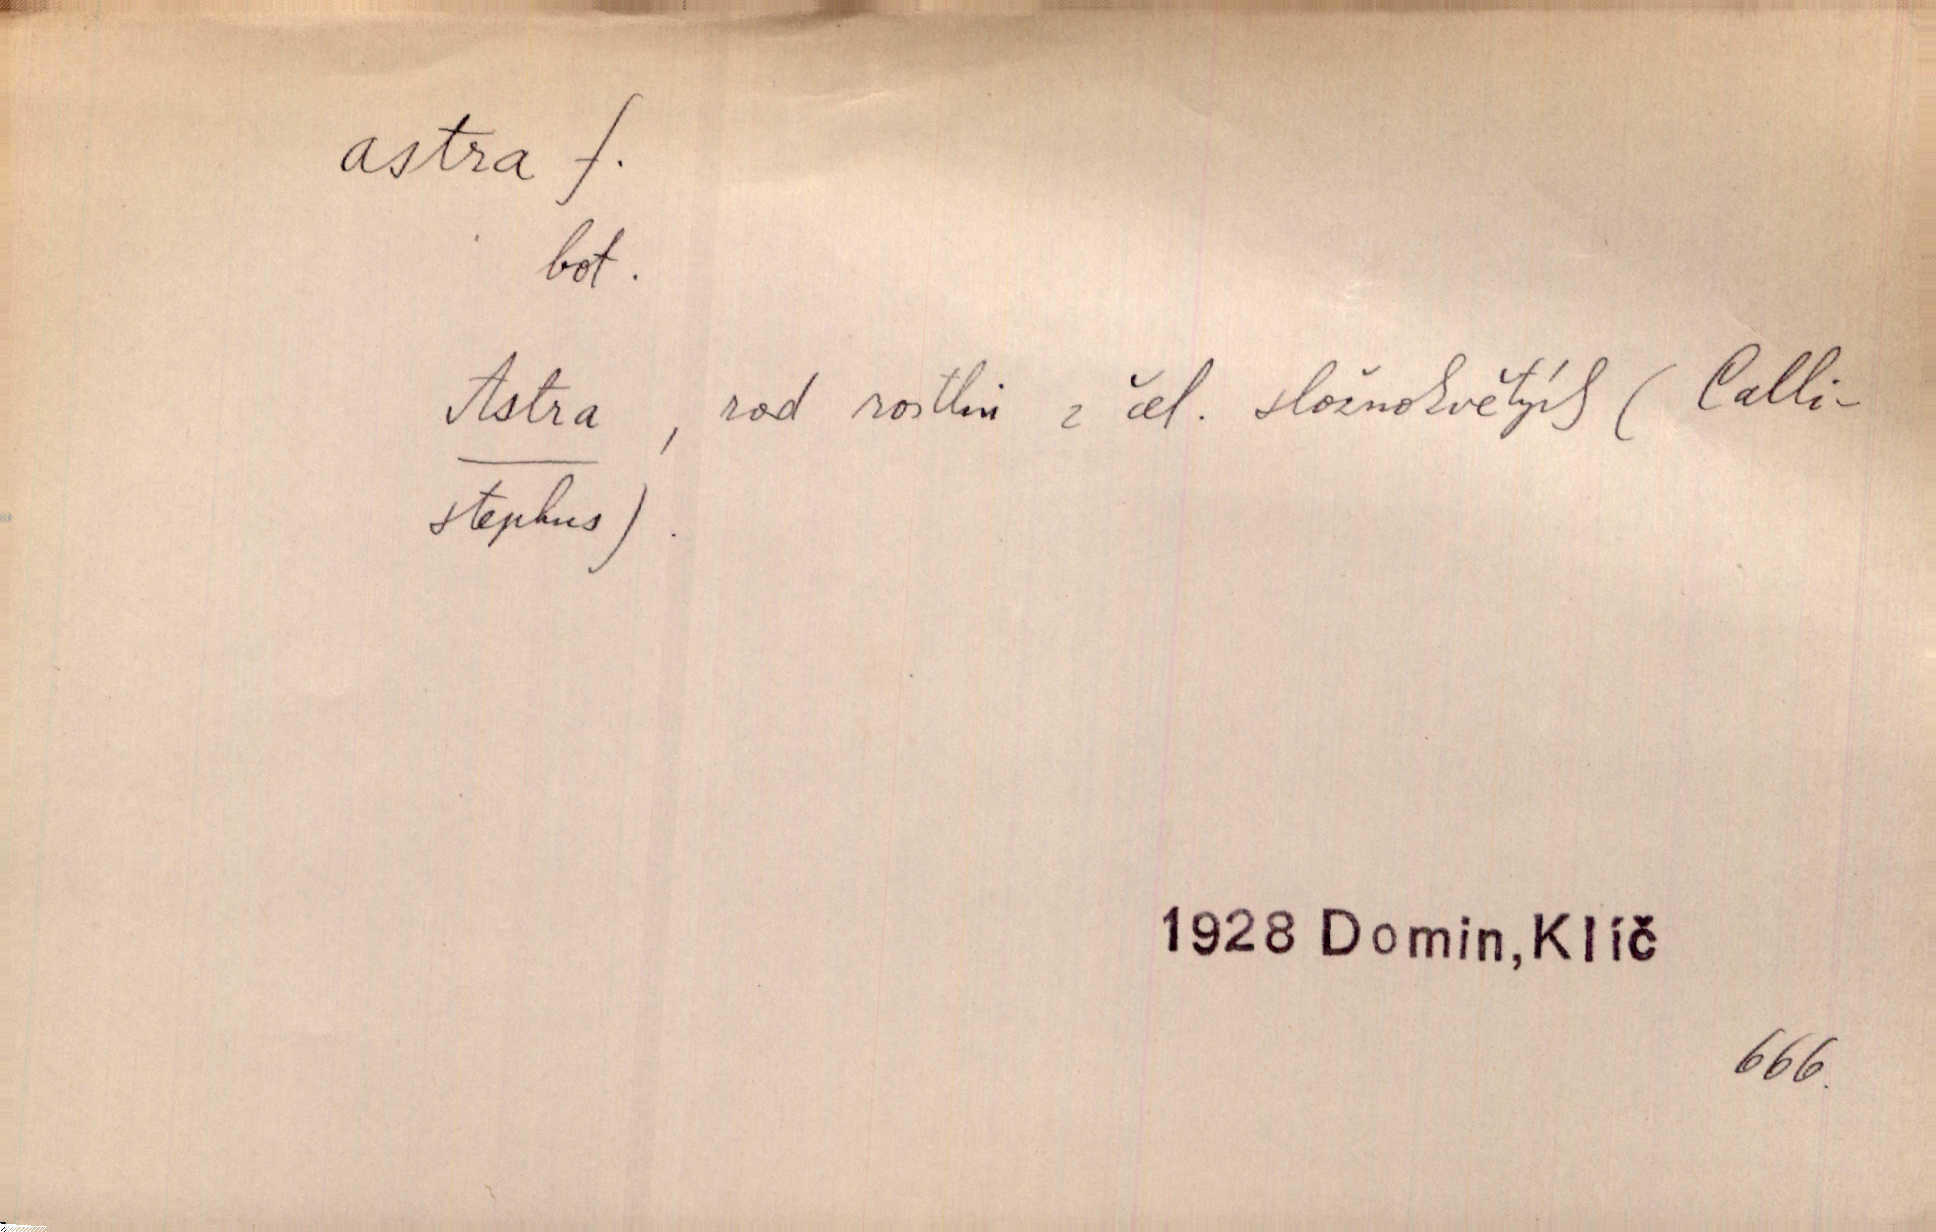 astra f.
bot.
Astra, rod rostlin z čel. složnokvětých (Calli-
stephus).
1928 Domin, Klíč
666.